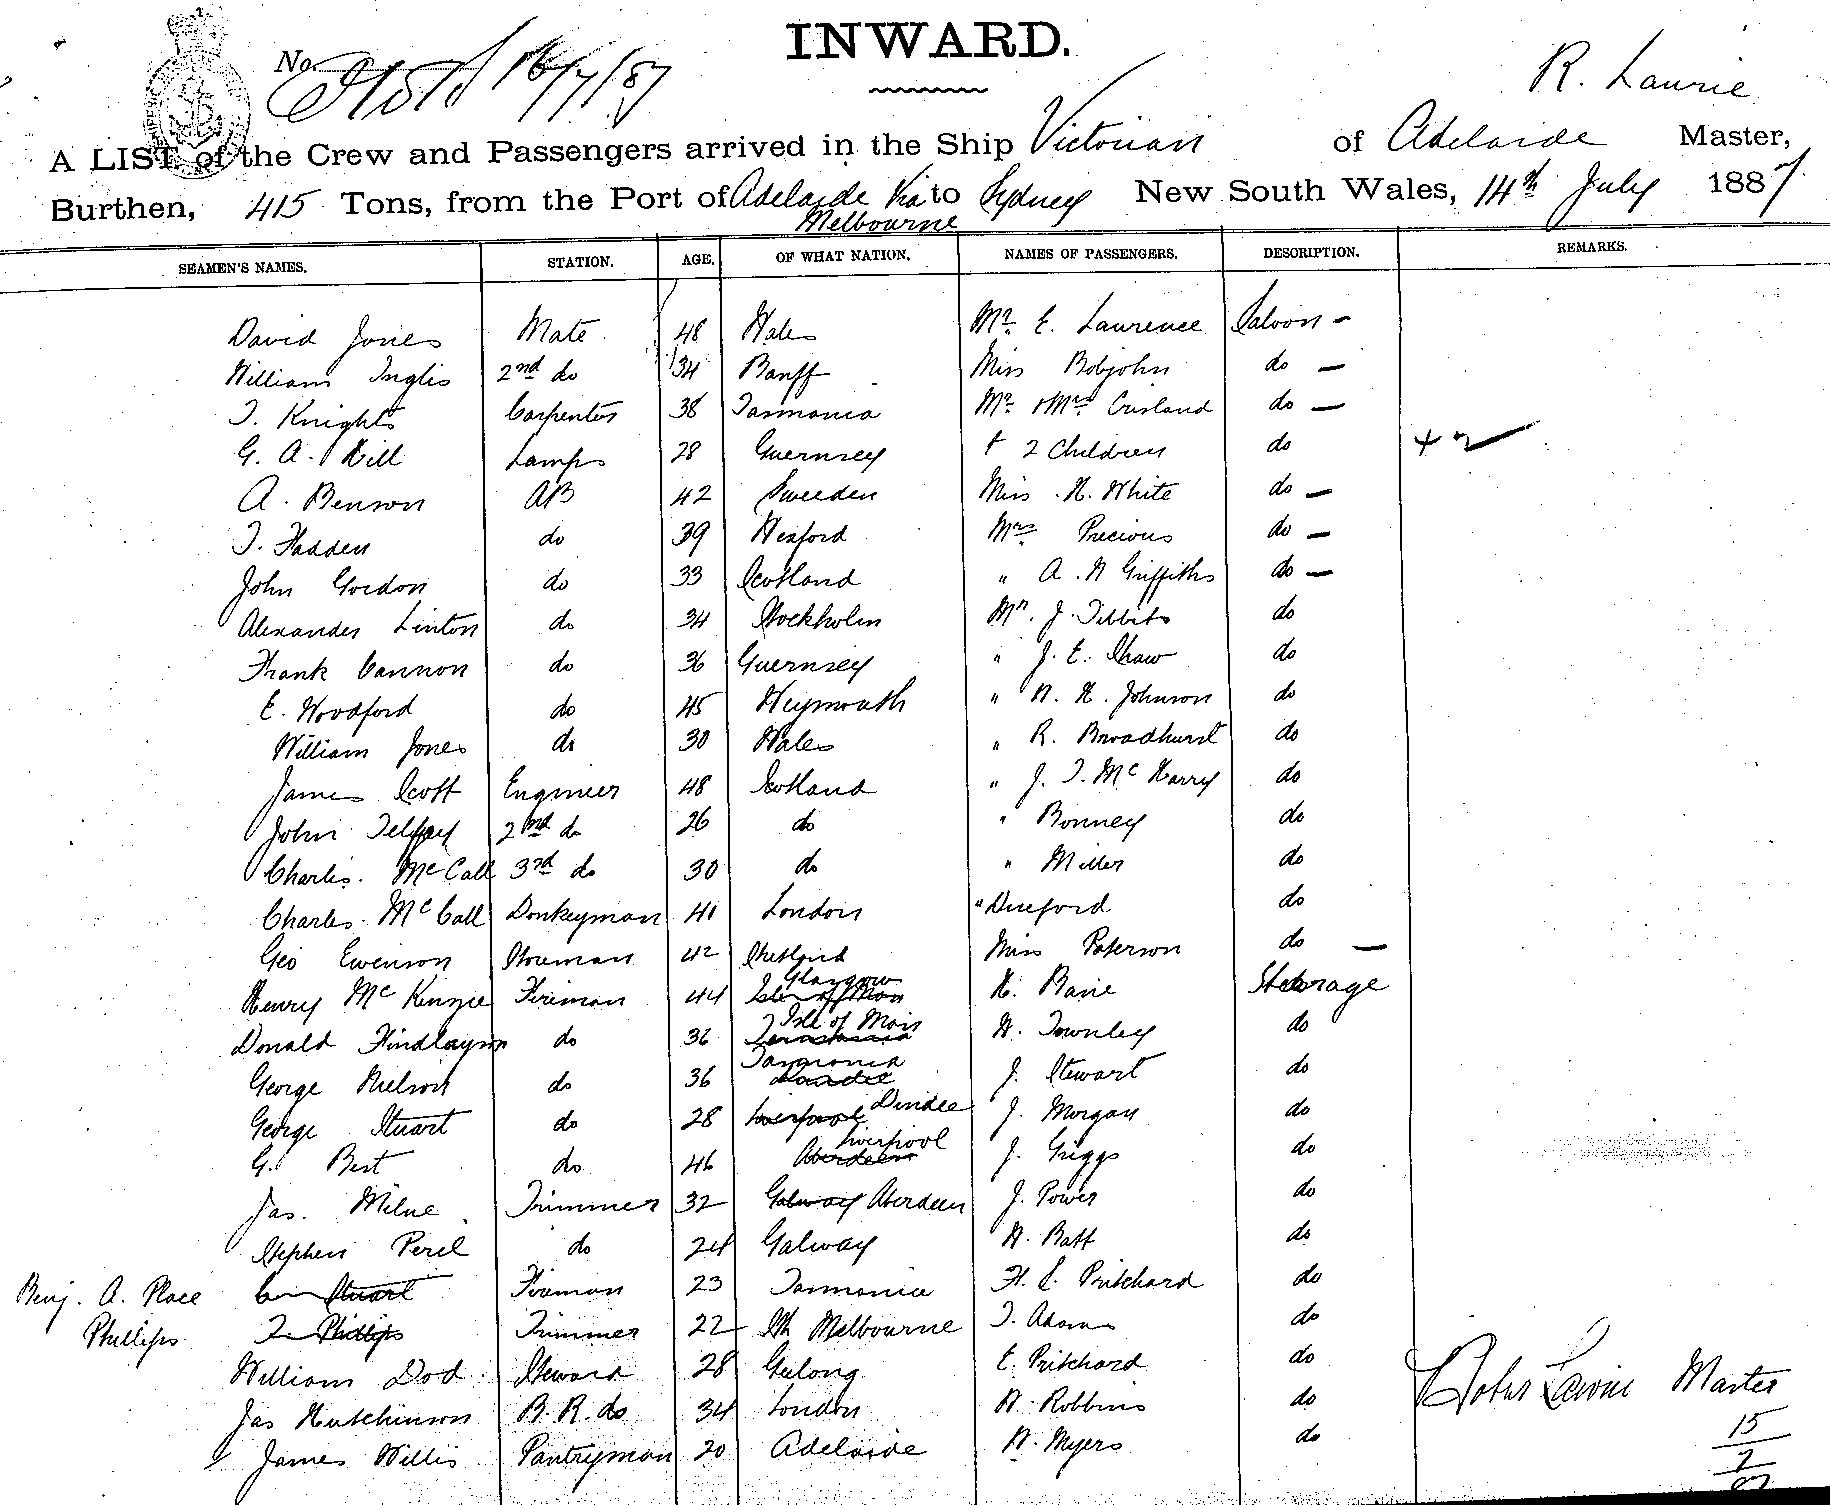 INWARD.
No. 16/7/87
R. Laurie
A LIST of the Crew and Passengers arrived in the Ship Victorian of Adelaide Master,
Burthen, 415 Tons, from the Port of Adelaide Via to Sydney New South Wales, 14th July 1887
Melbourne
SEAMEN'S NAMES. STATION. AGE. OF WHAT NATION. NAMES OF PASSENGERS. DESCRIPTION. REMARKS.
David Jones Mate 48 Wales Mr. E. Laurence Saloon -
William Inglis 2nd do 34 Banff Miss Bobjohn do -
T. Knights Carpenter 38 Tasmania Mr. & Mrs Crisland do -
G. A. Hill Lamps 28 Guernsey + 2 Children do + 2
A. Benson AB 42 Sweeden Miss H. White do -
T. Hadden do 39 Wexford Mrs Precious do -
John Gordon do 33 Scotland " A. W Griffiths do -
Alexander Linton do 34 Stockholm Mr. J. Tibbits do
Frank Cannon do 36 Guernsey " J. E. Shaw do
E. Woodford do 45 Weymouth " W. H. Johnson do
William Jones do 30 Wales " R. Broadhurst do
James Scott Engineer 48 Scotland " J. T. Mc Harry do
John 2nd do 26 do " Bonney do
Charles. Mc Call 3rd do 30 do " Miller do
Charles. Mc Call Donkeyman 41 London " Dureford do
Geo Ewenson Storeman 42 Shetland Miss Paterson do -
Henry Mc Kenzie Fireman 44 Isle of Man Glasgow H. Bane Steerage
Donald Findlayson do 36 Tasmania Isle of Man W. Townley do
George Nielson do 36 Dundee Tasmania J. Stewart do
George Stuart do 28 Liverpool Dundee J. Morgan do
G. Best do 46 Aberdeen Liverpool J. Griggs do
Jas. Milne Trimmer 32 Galway Aberdeen J. Power do
Stephen Perel do 24 Galway W. Batt do
Benj. A. Place Stuart Fireman 23 Tasmania H. C. Pritchard do
Phillips T. Phillips Trimmer 22 Sth Melbourne T. Adams do
William Dod Steward 28 Geelong E. Pritchard do
Jas Hutchinson B. R. do 34 London W. Robbins do
James Willis Pantryman 20 Adelaide W. Myers do
Master
15
2